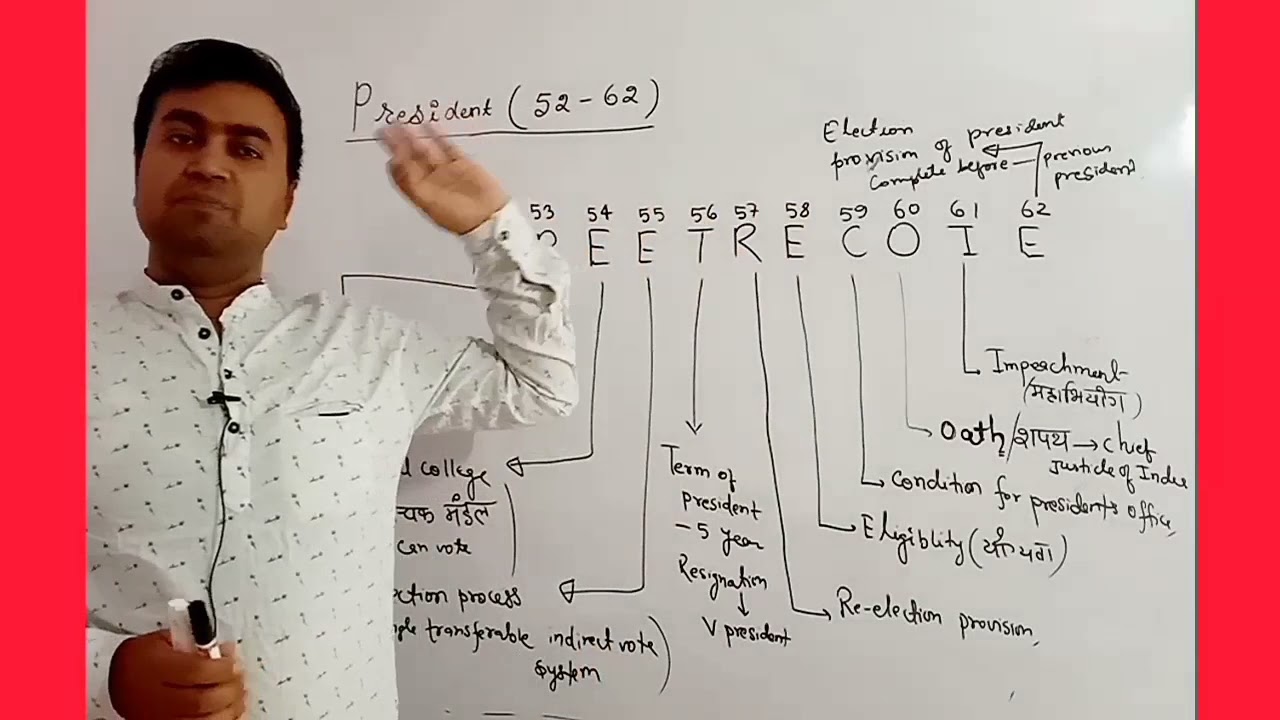 President (52-62)
Election
provision of president
Complete before
previous
president
53 54 55 56 57 58 59 60 61 62
E E T R E C O I E
Impeachment
(महाभियोग)
Oath/शपथ → Chief
Justice of India
Condition for presidents office,
Eligiblity (योग्यता)
Re-election provision,
Term of
president
- 5 year
Resignation
V president
college
मंडल
can vote
ction process
transferable indirect vote
system